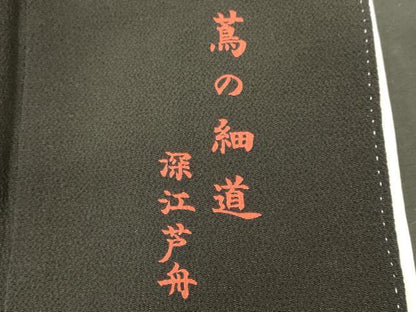 蔦の細道
深江芦舟